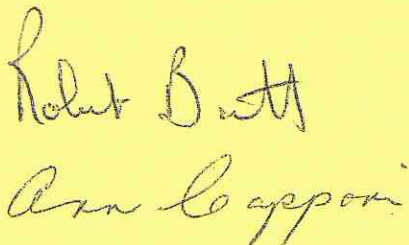 Robert Britt
Ann Capponi